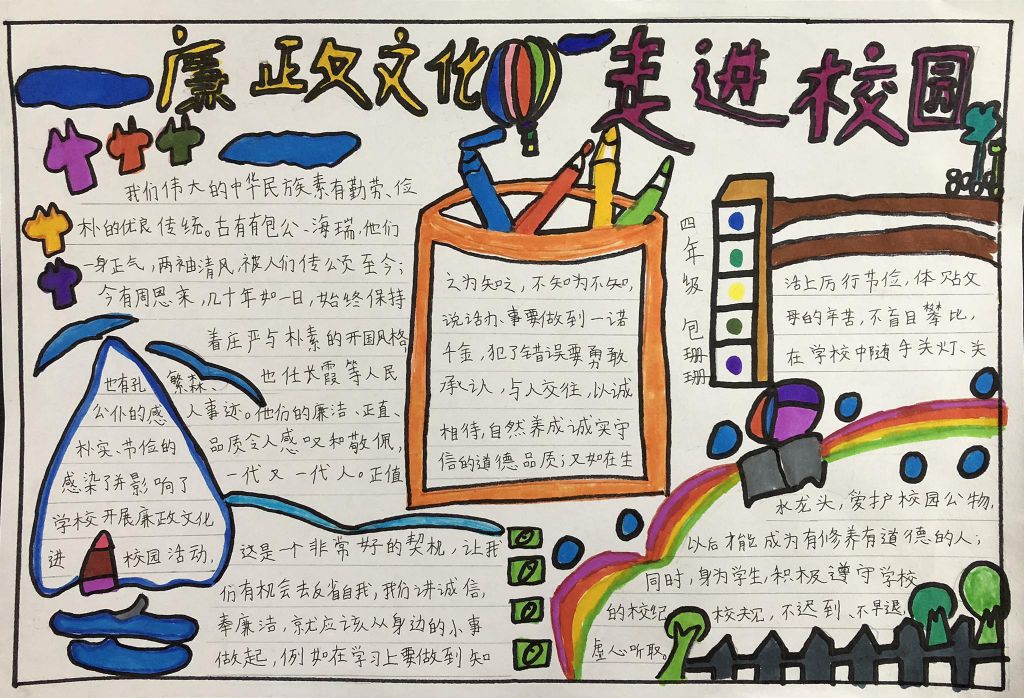 廉政文化 走进校园
我们伟大的中华民族素有勤劳、俭
朴的优良传统。古有有包公、海瑞，他们
一身正气，两袖清风，被人们传公页至今；
今有周恩来，几十年如一日，始终保持
着庄严与朴素的开国风格
也有孔繁森、也任长霞等人民
公仆的感人事迹。他们的廉洁、正直、
朴实、节俭的品质令人感叹和敬佩，
感染了并影响了一代又一代人。正值
学校开展廉政文化
进校园活动，这是一个非常好的契机，让我
们有机会去反省自我，我们讲诚信，
奉廉洁，就应该从身边的小事
做起，例如在学习上要做到知
之为知之，不知为不知，
说话办事要做到一诺
千金，犯了错误要勇敢
承认，与人交往，以诚
相待，自然养成诚实守
信的道德品质；又如在生
四年级 包珊珊
活上厉行节俭，体贴父
母的辛苦，不盲目攀比，
在学校中随手关灯、关
水龙头，爱护校园公物，
以后才能成为有修养有道德的人；
同时，身为学生，积极遵守学校
的校纪校规，不迟到、不早退，
虚心听取。